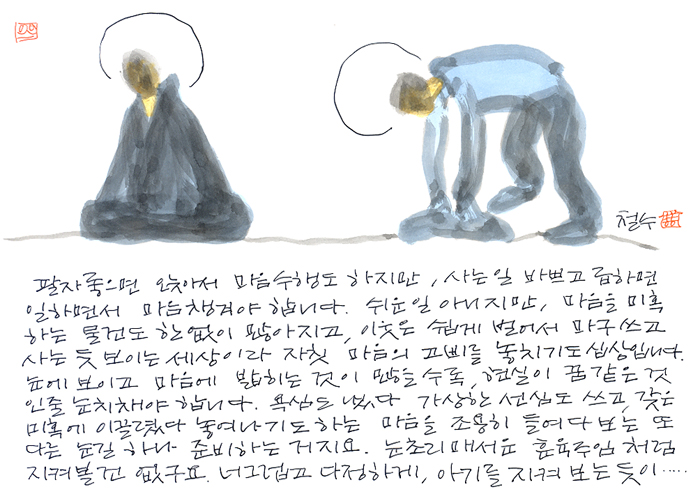 철수
팔자좋으면 앉아서 마음수행도 하지만, 사는일 바쁘고 급하면
일하면서 마음챙겨야 합니다. 쉬운일 아니지만, 마음을 미혹
하는 물건도 한없이 많아지고, 이웃은 쉽게 벌어서 마구쓰고
사는듯 보이는 세상이라 자칫 마음의 고삐를 놓치기도 십상입니다.
눈에 보이고 마음에 밟히는 것이 많을수록, 현실이 꿈같은 것
인줄 눈치채야 합니다. 욕심도 냈다 가상한 선심도 쓰고, 갖은
미혹에 이끌렸다 놓여나기도하는 마음을 조용히 들여다 보는 또
다른 눈길 하나 준비하는 거지요. 눈초리매서운 훈육주임 처럼
지켜볼건 없구요. 너그럽고 다정하게, 아기를 지켜 보는 듯이.....